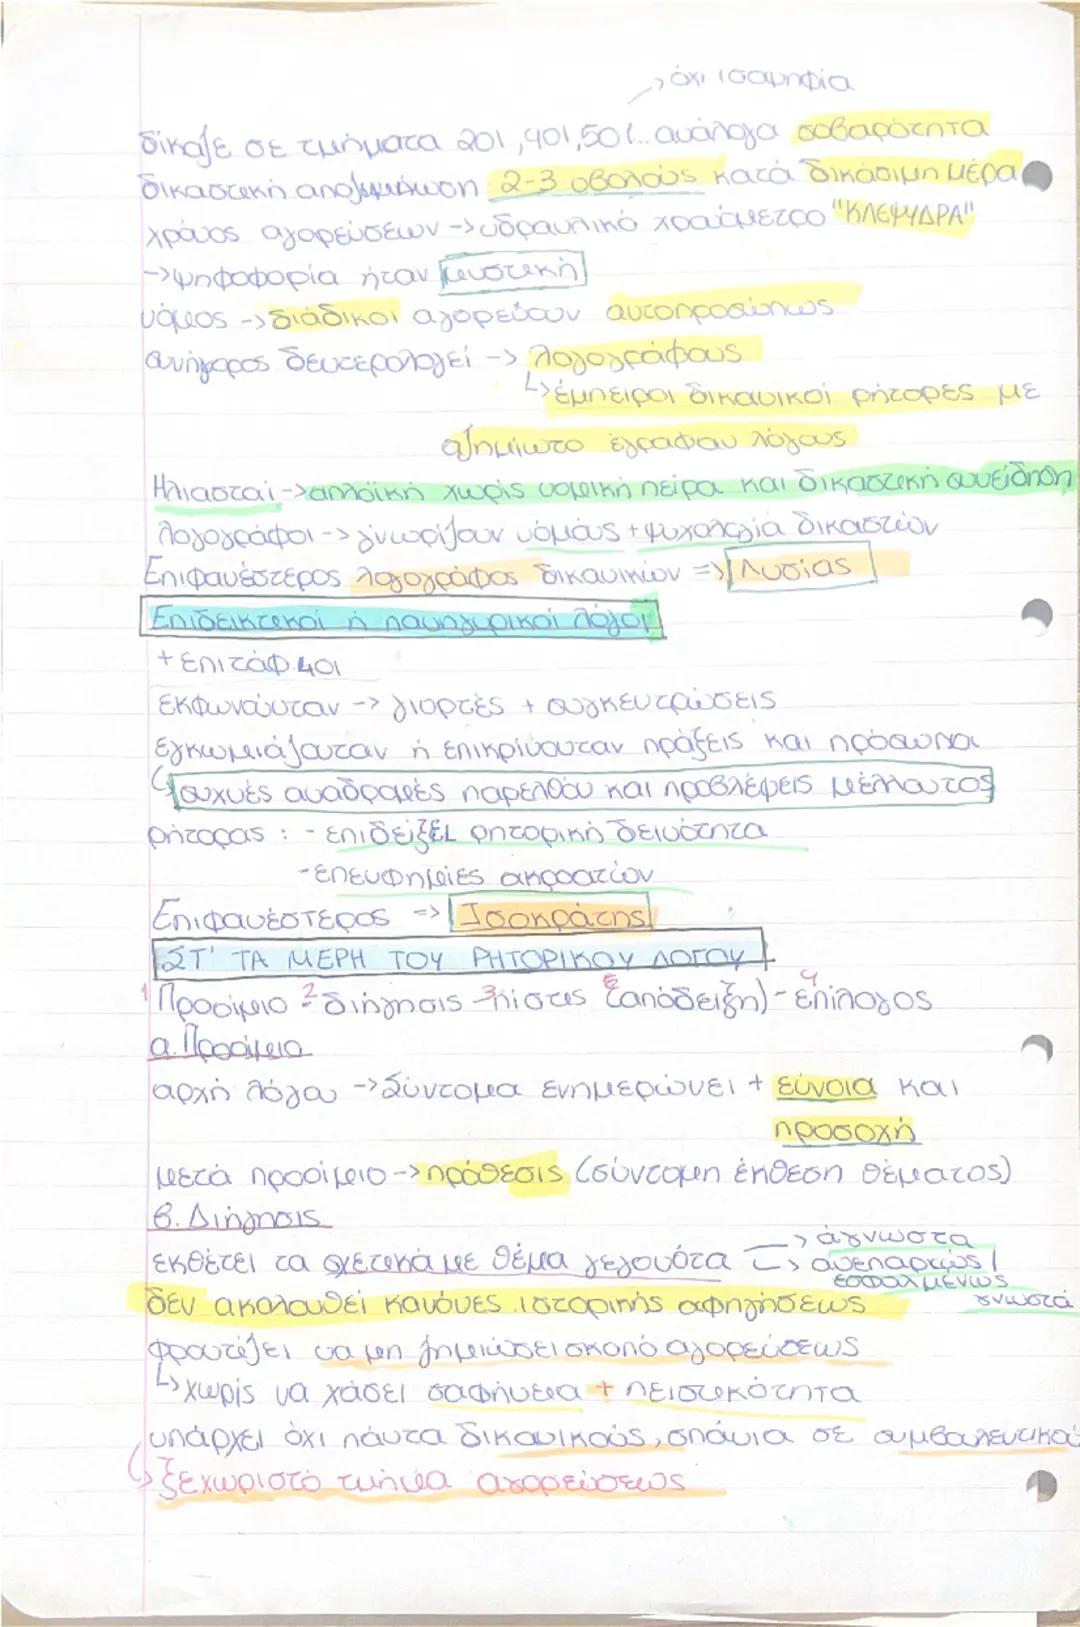 → όχι ισοψηφία
δίκαζε σε τμήματα 201, 401, 501... ανάλογα σοβαρότητα
δικαστική αποζημίωση 2-3 οβολούς κατά δικάσιμη μέρα
χρόνος αγορεύσεων -> υδραυλικό χρονόμετρο "ΚΛΕΨΥΔΡΑ"
-> ψηφοφορία ήταν μυστική
νόμος -> διάδικοι αγορεύουν αυτοπροσώπως
συνήγορος δευτερολογεί -> λογογράφους
↳ έμπειροι δικανικοί ρήτορες με
αζημίωτο έγραφαν λόγους
Ηλιασταί -> απλοϊκή χωρίς νομική πείρα και δικαστική συνείδηση
λογογράφοι -> γνωρίζαν νόμους + ψυχολογία δικαστών
Επιφανέστερος λογογράφος δικανικών => Λυσίας
Επιδεικτικοί ή πανηγυρικοί λόγοι
+ επιτάφιοι
εκφωνούνταν -> γιορτές + συγκεντρώσεις
εγκωμιάζονταν ή επικρίνονταν πράξεις και πρόσωπα
↳ συχνές αναδρομές παρελθόν και προβλέψεις μέλλοντος
ρήτορας : - επιδείξει ρητορική δεινότητα
- επευφημίες ακροατών
Επιφανέστερος => Ισοκράτης
ΣΤ' ΤΑ ΜΕΡΗ ΤΟΥ ΡΗΤΟΡΙΚΟΥ ΛΟΓΟΥ
1 Προοίμιο - 2 διήγησις - 3 πίστες (απόδειξη) - 4 επίλογος
α. Προοίμιο
αρχή λόγου -> Σύντομα ενημερώνει + εύνοια και
προσοχή
μετά προοίμιο -> πρόθεσις (σύντομη έκθεση θέματος)
β. Διήγησις
εκθέτει τα σχετικά με θέμα γεγονότα -> άγνωστα
-> ανεπαρκώς /
εσφαλμένως
γνωστά
δεν ακολουθεί κανόνες ιστορικής αφηγήσεως
φροντίζει να μη ζημιώσει σκοπό αγορεύσεως
↳ χωρίς να χάσει σαφήνεια + πειστικότητα
υπάρχει όχι πάντα δικανικούς, σπάνια σε συμβουλευτικού
↳ ξεχωριστό τμήμα αγορεύσεως